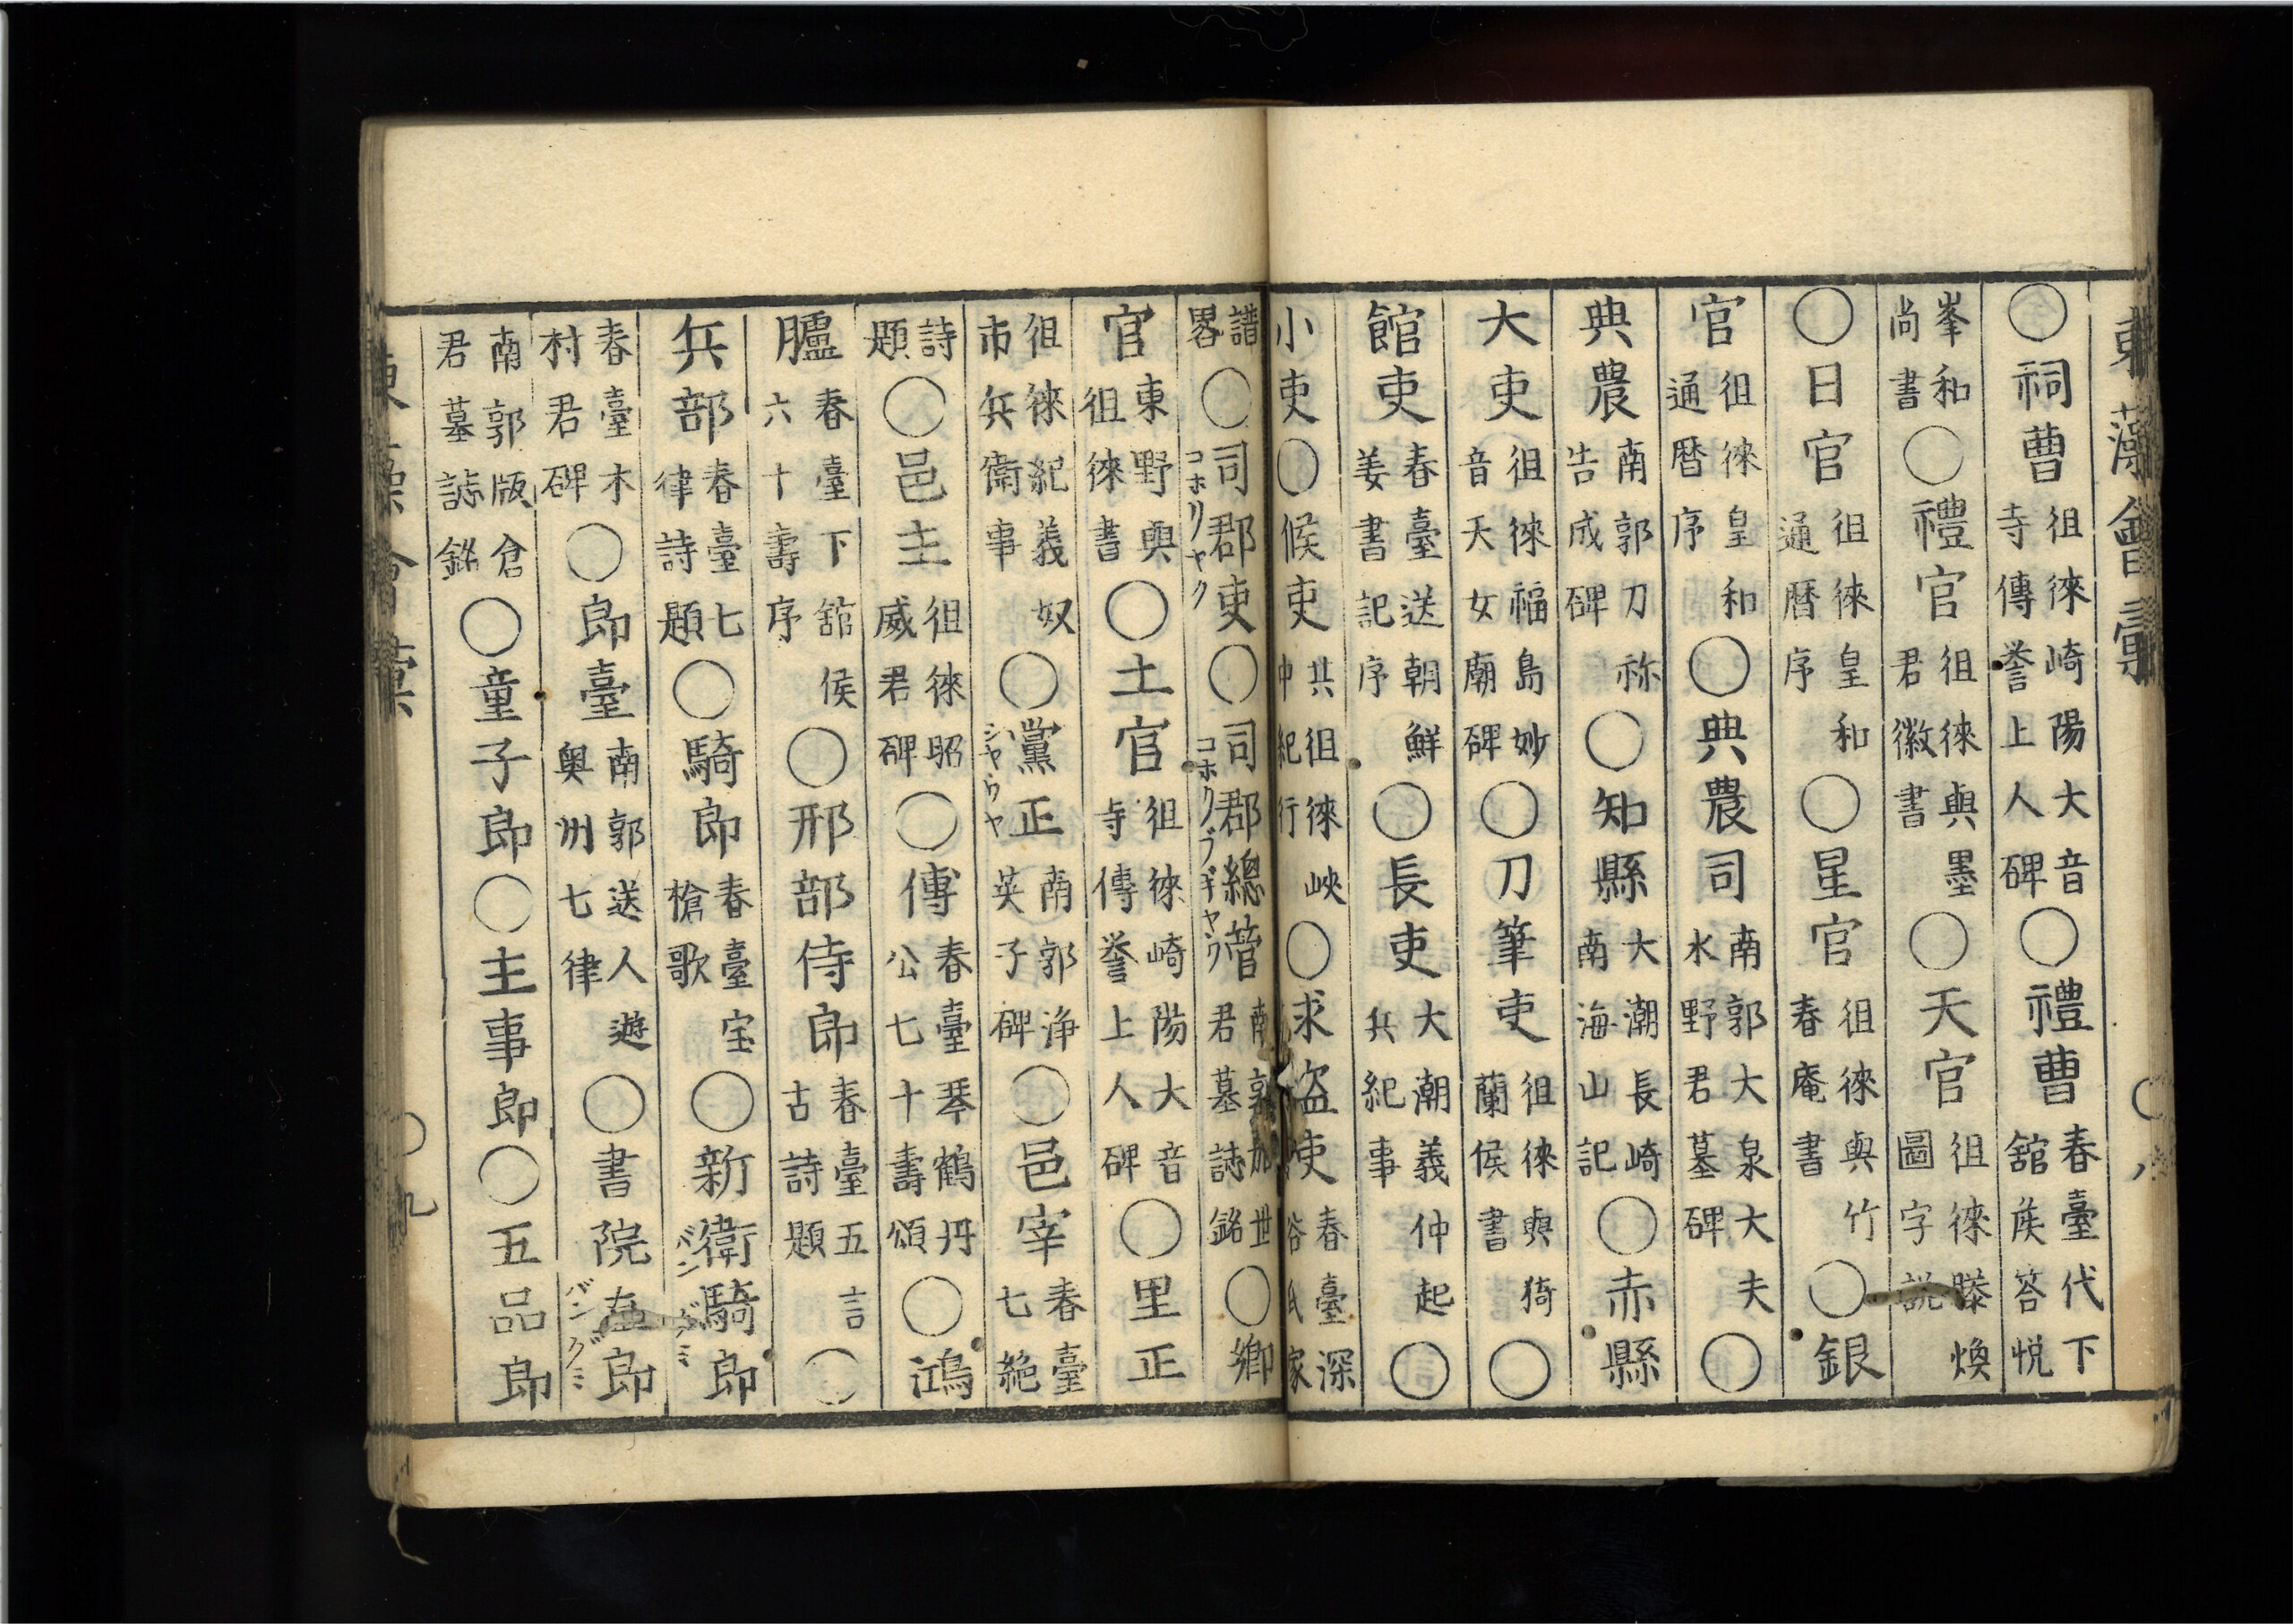 東藻會彙 〇八
〇祠曹 徂徠崎陽大音寺傳誉上人碑 〇禮曹 春臺代下舘矦答悦
峯和尚書 〇禮官 徂徠與墨君徽書 〇天官 徂徠滕煥圖字説
〇日官 徂徠皇和通暦序 〇星官 徂徠與竹春庵書 〇銀
官 徂徠皇和通暦序 〇典農司 南郭大泉大夫水野君墓碑 〇
典農 南郭刀祢告成碑 〇知縣 大潮長崎南海山記 〇赤縣
大吏 徂徠福島妙音天女廟碑 〇刀筆吏 徂徠與猗蘭侯書 〇
館吏 春臺送朝鮮姜書記序 〇長吏 大潮義仲起兵紀事 〇
小吏〇候吏 共徂徠峽中紀行 〇求盗吏 春臺深谷氏家
譜畧 〇司郡吏 コホリヤク 〇司郡總管 コホクブギヤウ 南郭加世君墓誌銘 〇郷
官 東野與徂徠書 〇土官 徂徠崎陽大音寺傳誉上人碑 〇里正
徂徠紀義奴市兵衞事 〇黨正 シヤウヤ 南郭浄英子碑 〇邑宰 春臺七絶
詩題 〇邑主 徂徠昭威君碑 〇傳 春臺琴鶴丹公七十壽頌 〇鴻
臚 春臺下舘侯六十壽序 〇邢部侍郎 春臺五言古詩題 〇
兵部 春臺七律詩題 〇騎郎 春臺宝槍歌 〇新衛騎郎 バン グミ
春臺木村君碑 〇郎臺 南郭送人遊奥州七律 〇書院直郎 バングミ
南郭版倉君墓誌銘 〇童子郎〇主事郎〇五品郎
東藻會彙 〇九